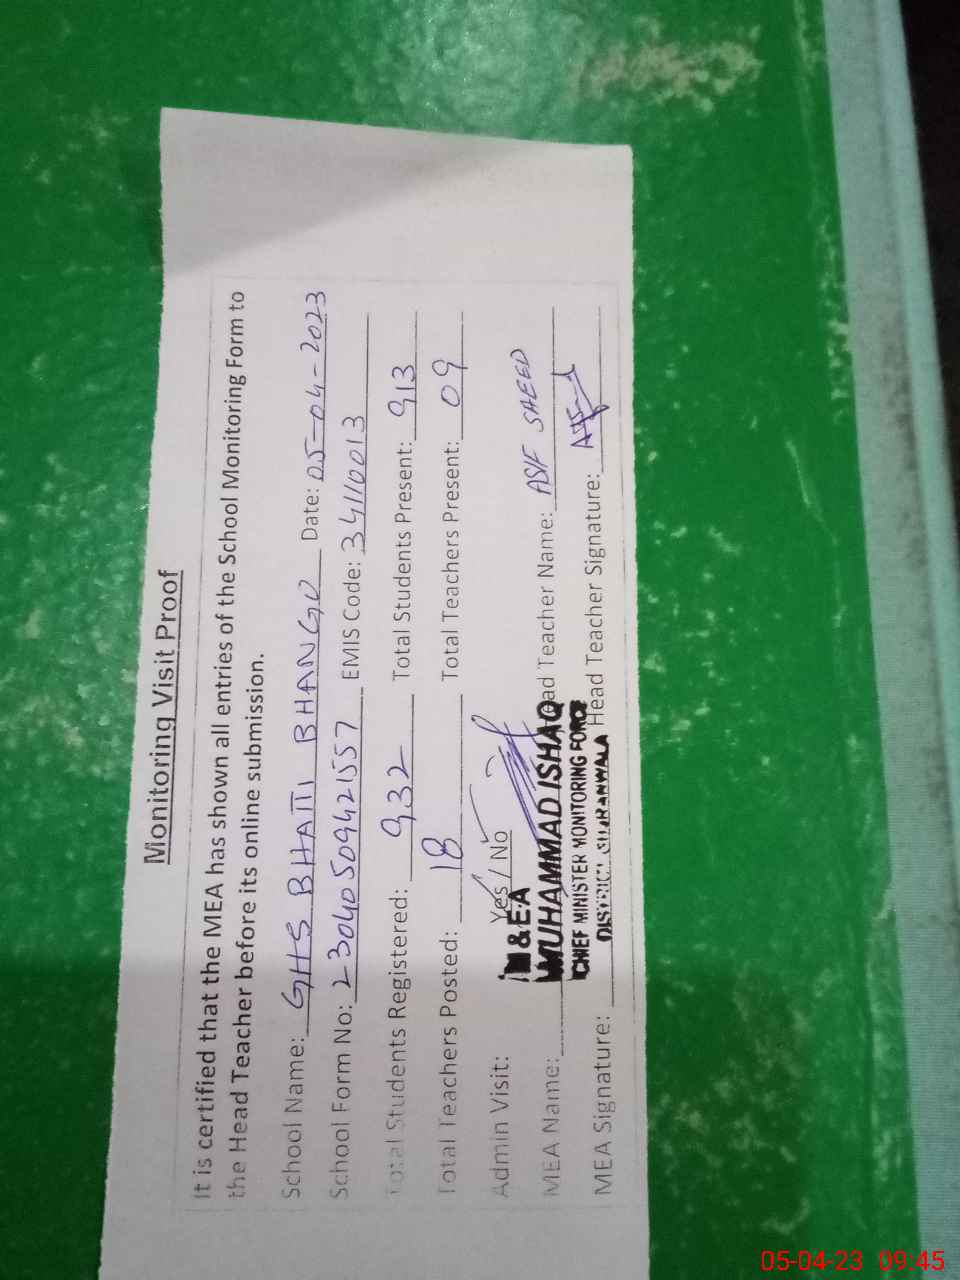 Monitoring Visit Proof
It is certified that the MEA has shown all entries of the School Monitoring Form to
the Head Teacher before its online submission.
School Name: GHS BHATTI BHANGO Date: 05-04-2023
School Form No: 23040509421557 EMIS Code: 34110013
Total Students Registered: 932 Total Students Present: 913
Total Teachers Posted: 18 Total Teachers Present: 09
Admin Visit: Yes / No
M & E.A
MEA Name: MUHAMMAD ISHAQ Head Teacher Name: ASIF SAEED
CHIEF MINISTER MONITORING FORCE
MEA Signature: DISTRICT GUJRANWALA Head Teacher Signature:
05-04-23 09:45